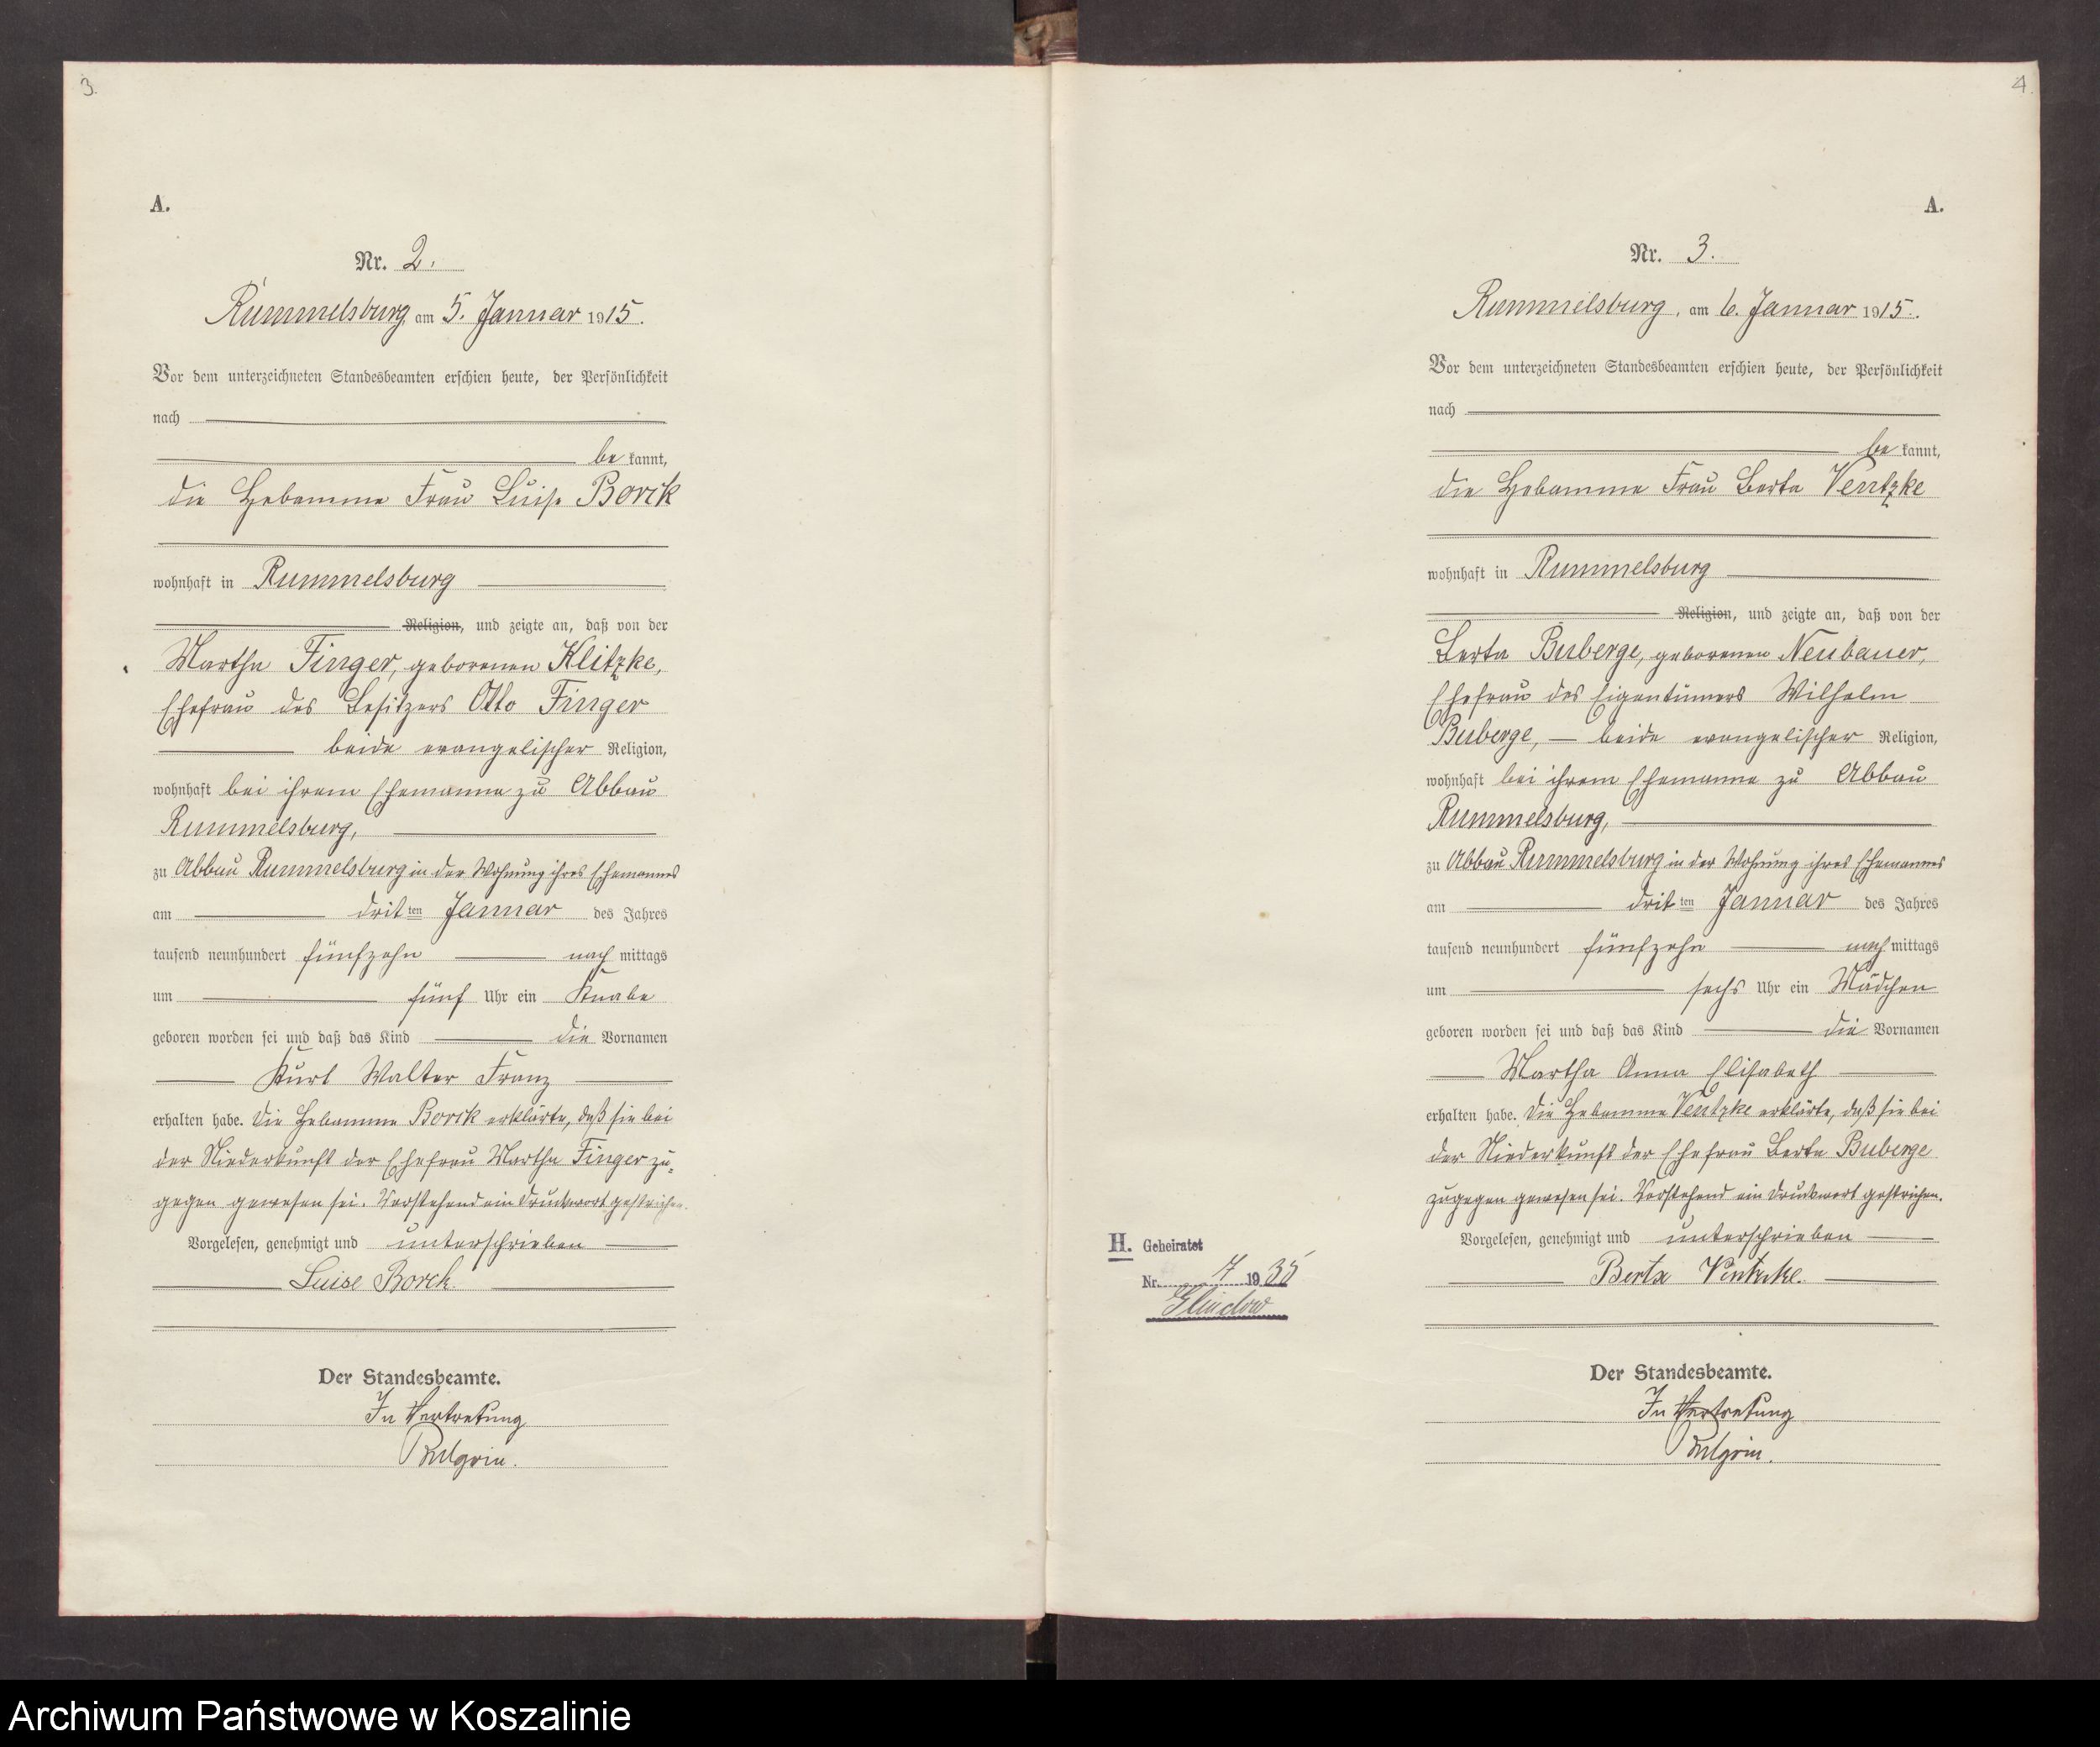 3.
A.
Nr. 2.
Rummelsburg, am 5. Januar 1915.
Vor dem unterzeichneten Standesbeamten erschien heute, der Persönlichkeit
nach
be kannt,
die Hebamme Frau Luise Borck
wohnhaft in Rummelsburg
Religion, und zeigte an, daß von der
Martha Finger, geborenen Klitzke,
Ehefrau des Besitzers Otto Finger
beide evangelischer Religion,
wohnhaft bei ihrem Ehemanne zu Abbau
Rummelsburg,
zu Abbau Rummelsburg in der Wohnung ihres Ehemannes
am drit ten Januar des Jahres
tausend neunhundert fünfzehn nach mittags
um fünf Uhr ein Knabe
geboren worden sei und daß das Kind die Vornamen
Kurt Walter Franz
erhalten habe. Die Hebamme Borck erklärte, daß sie bei
der Niederkunft der Ehefrau Martha Finger zu-
gegen gewesen sei. Vorstehend ein Druckwort gestrichen.
Vorgelesen, genehmigt und unterschrieben
Luise Borck.
Der Standesbeamte.
In Vertretung
4.
A.
Nr. 3.
Rummelsburg, am 6. Januar 1915.
Vor dem unterzeichneten Standesbeamten erschien heute, der Persönlichkeit
nach
be kannt,
die Hebamme Frau Berta Ventzke
wohnhaft in Rummelsburg
Religion, und zeigte an, daß von der
Berta Buberge, geborenen Neubauer,
Ehefrau des Eigentümers Wilhelm
Buberge, beide evangelischer Religion,
wohnhaft bei ihrem Ehemanne zu Abbau
Rummelsburg,
zu Abbau Rummelsburg in der Wohnung ihres Ehemannes
am drit ten Januar des Jahres
tausend neunhundert fünfzehn nach mittags
um sechs Uhr ein Mädchen
geboren worden sei und daß das Kind die Vornamen
Martha Anna Elisabeth
erhalten habe. Die Hebamme Ventzke erklärte, daß sie bei
der Niederkunft der Ehefrau Berta Buberge
zugegen gewesen sei. Vorstehend ein Druckwort gestrichen.
Vorgelesen, genehmigt und unterschrieben
Berta Ventzke.
Der Standesbeamte.
In Vertretung
H. Geheiratet
Nr. 7 1935
Glindow
Archiwum Państwowe w Koszalinie